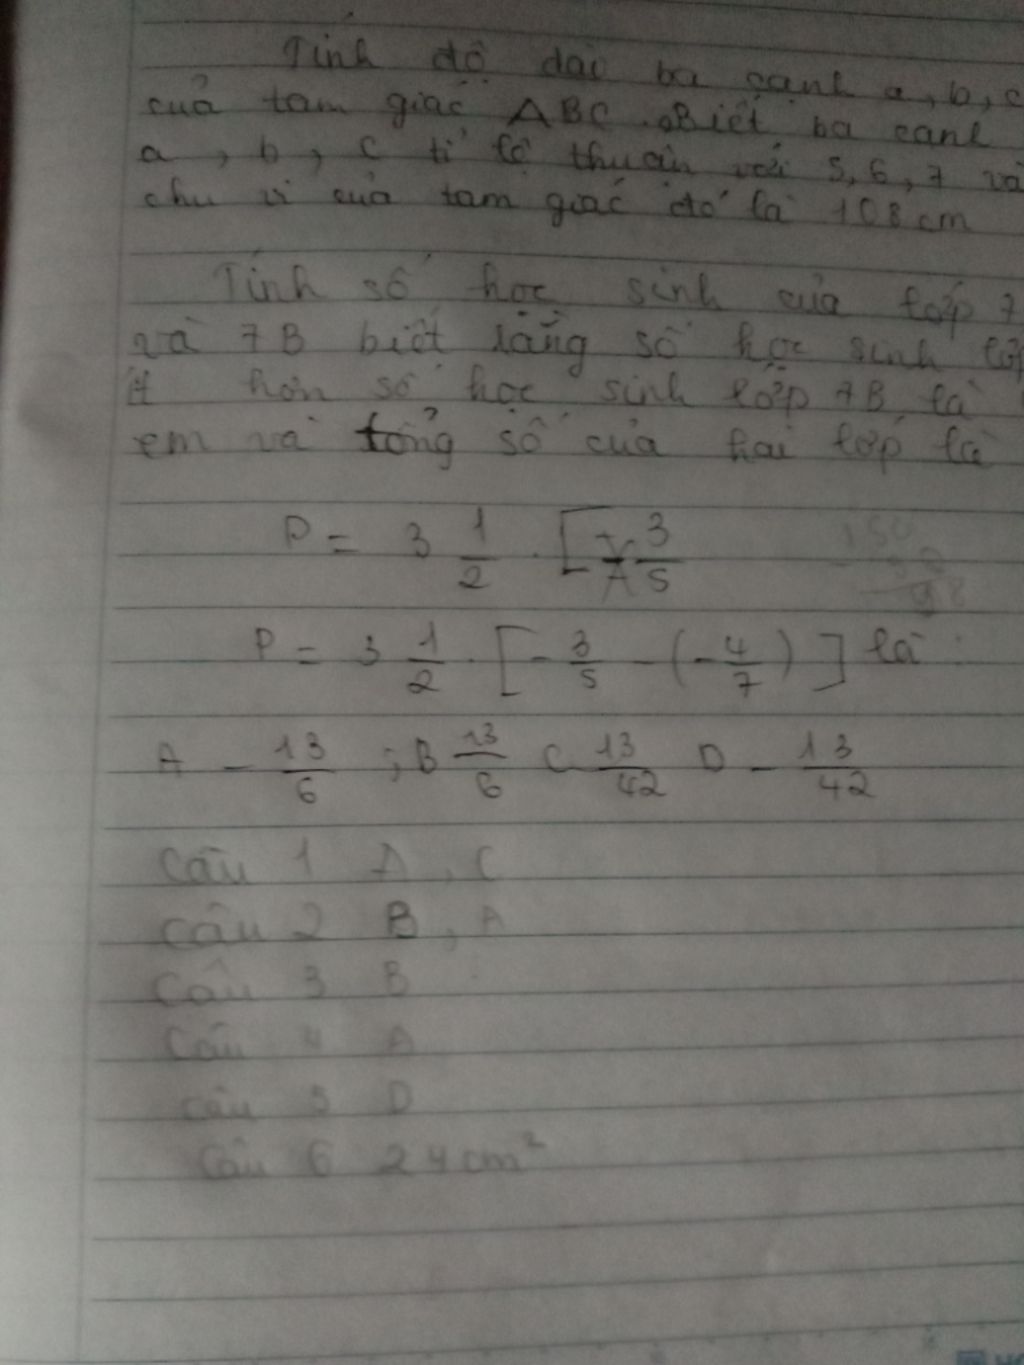 Tính độ dài ba cạnh a, b, c
của tam giác ABC. Biết ba cạnh
a, b, c tỉ lệ thuận với 5, 6, 7 và
chu vi của tam giác đó là 108 cm
Tính số học sinh của lớp 7
và 7B biết rằng số học sinh lớp
A hơn số học sinh lớp 7B là
em và tổng số của hai lớp là
P = 3 1/2 . [ 3/5
P = 3 1/2 . [ - 3/5 - (- 4/7) ] là :
A - 13/6 ; B 13/6 C 13/42 D - 13/42
Câu 1 A, C
Câu 2 B, A
Câu 3 B
Câu 4 A
Câu 5 D
Câu 6 24 cm²